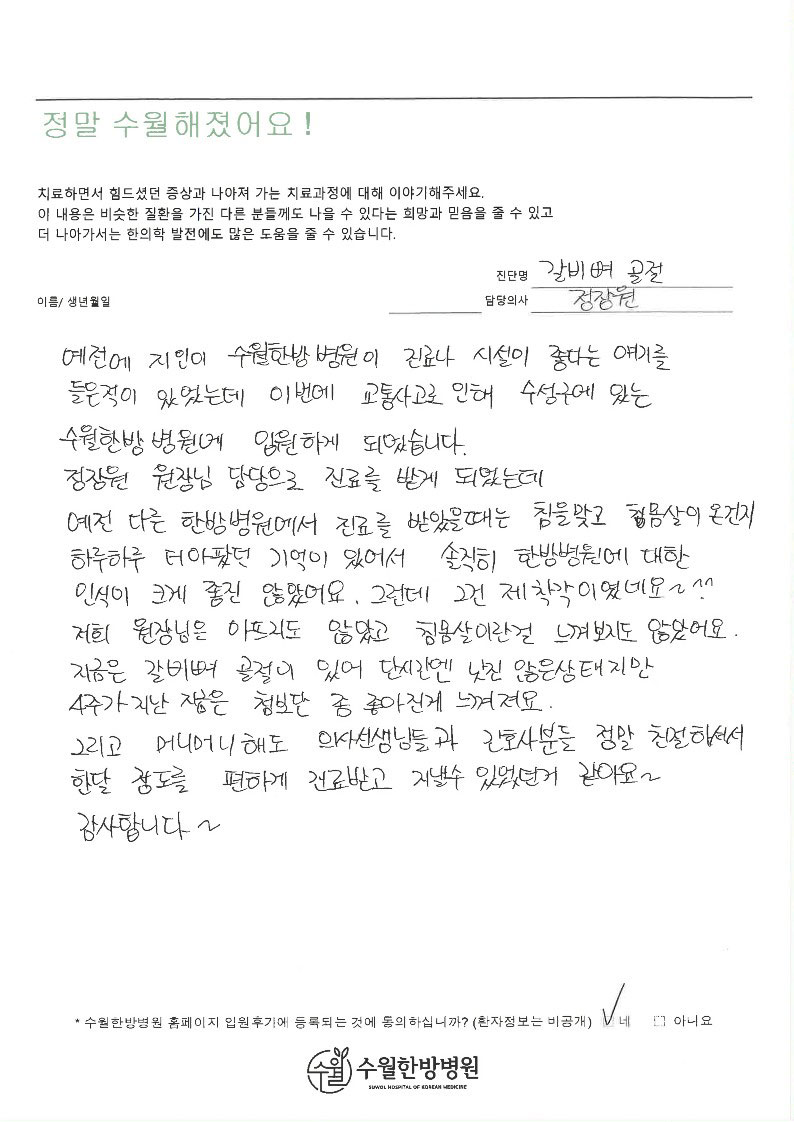 정말 수월해졌어요!
치료하면서 힘드셨던 증상과 나아져 가는 치료과정에 대해 이야기해주세요.
이 내용은 비슷한 질환을 가진 다른 분들께도 나을 수 있다는 희망과 믿음을 줄 수 있고
더 나아가서는 한의학 발전에도 많은 도움을 줄 수 있습니다.
진단명 갈비뼈 골절
이름/ 생년월일 담당의사 정장원
예전에 지인이 수월한방병원이 진료나 시설이 좋다는 얘기를
들은적이 있었는데 이번에 교통사고로 인해 수성구에 있는
수월한방병원에 입원하게 되었습니다.
정장원 원장님 담당으로 진료를 받게 되었는데
예전 다른 한방병원에서 진료를 받았을때는 침을맞고 침몸살이 온건지
하루하루 더아팠던 기억이 있어서 솔직히 한방병원에 대한
인식이 크게 좋진 않았어요. 그런데 그건 제 착각이였네요~^^
저희 원장님은 아프지도 않았고 침몸살이란걸 느껴보지도 않았어요.
지금은 갈비뼈 골절이 있어 단시간엔 낫진 않은상태지만
4주가 지난 지금은 첨보단 좀 좋아진게 느껴져요.
그리고 머니머니해도 의사선생님들과 간호사분들 정말 친절하셔서
한달 정도를 편하게 진료받고 지낼수 있었던거 같아요~
감사합니다~
* 수월한방병원 홈페이지 입원후기에 등록되는 것에 동의하십니까? (환자정보는 비공개) ☑ 네 □ 아니요
수월 수월한방병원
SUWOL HOSPITAL OF KOREAN MEDICINE